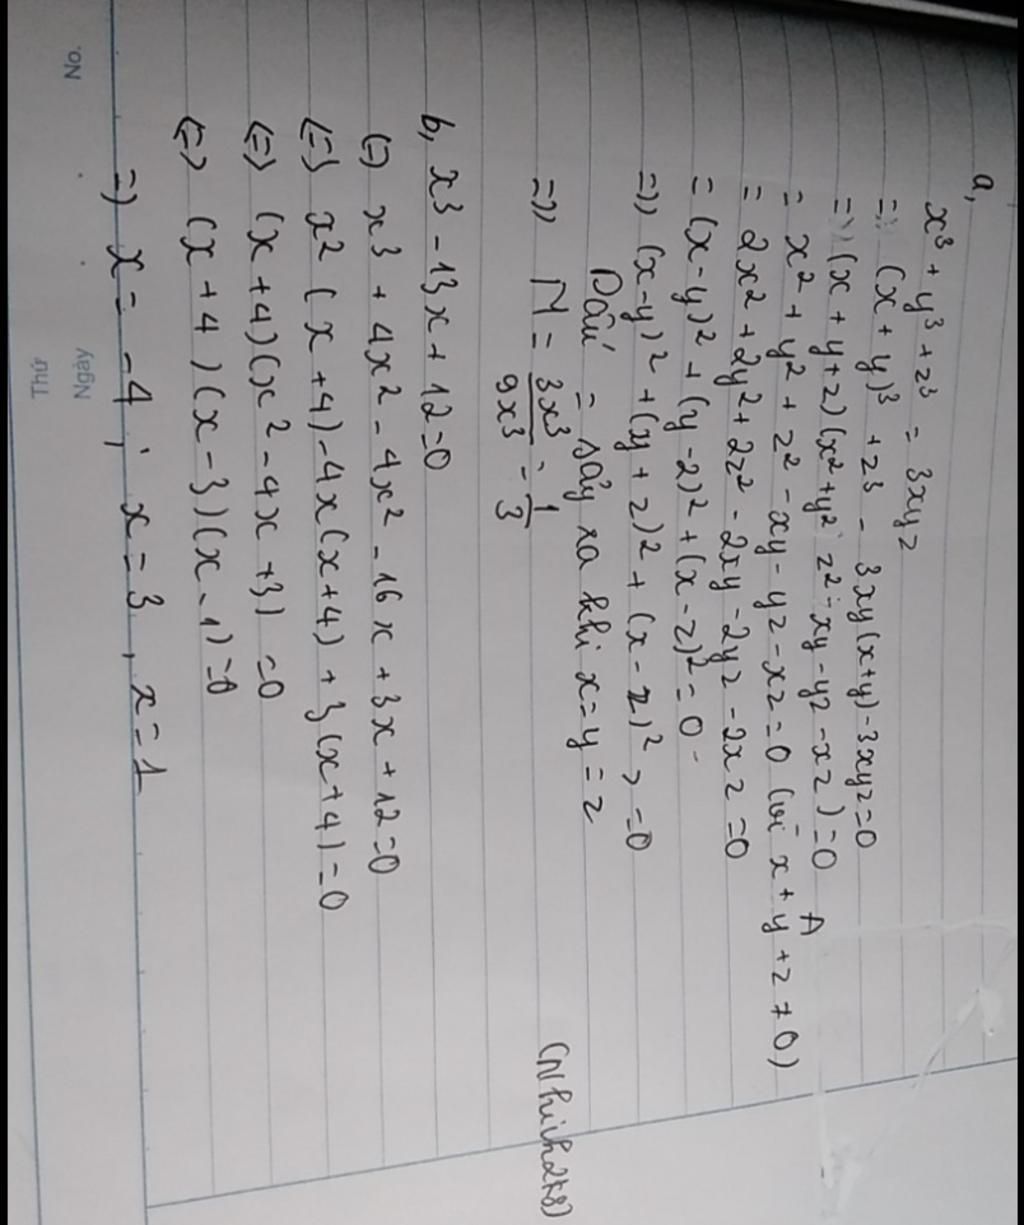 a,
x³ + y³ + z³ = 3xyz
=>> (x + y)³ + z³ - 3xy(x+y) - 3xyz = 0
=>> (x + y + z)(x² + y² z² - xy - yz - xz) = 0
= x² + y² + z² - xy - yz - xz = 0 (vì x + y + z ≠ 0)
= 2x² + 2y² + 2z² - 2xy - 2yz - 2xz = 0
= (x - y)² + (y - z)² + (x - z)² = 0
=>> (x - y)² + (y + z)² + (x - z)² > = 0
Dấu = sảy ra khi x = y = z
=>> M = 3x³/9x³ = 1/3
(Nhinh2k8)
b, x³ - 13x + 12 = 0
(=) x³ + 4x² - 4x² - 16x + 3x + 12 = 0
(=) x² (x + 4) - 4x(x + 4) + 3(x + 4) = 0
(=) (x + 4)(x² - 4x + 3) = 0
(=) (x + 4)(x - 3)(x - 1) = 0
=) x = -4 ; x = 3 , x = 1
No.
Thứ
Ngày